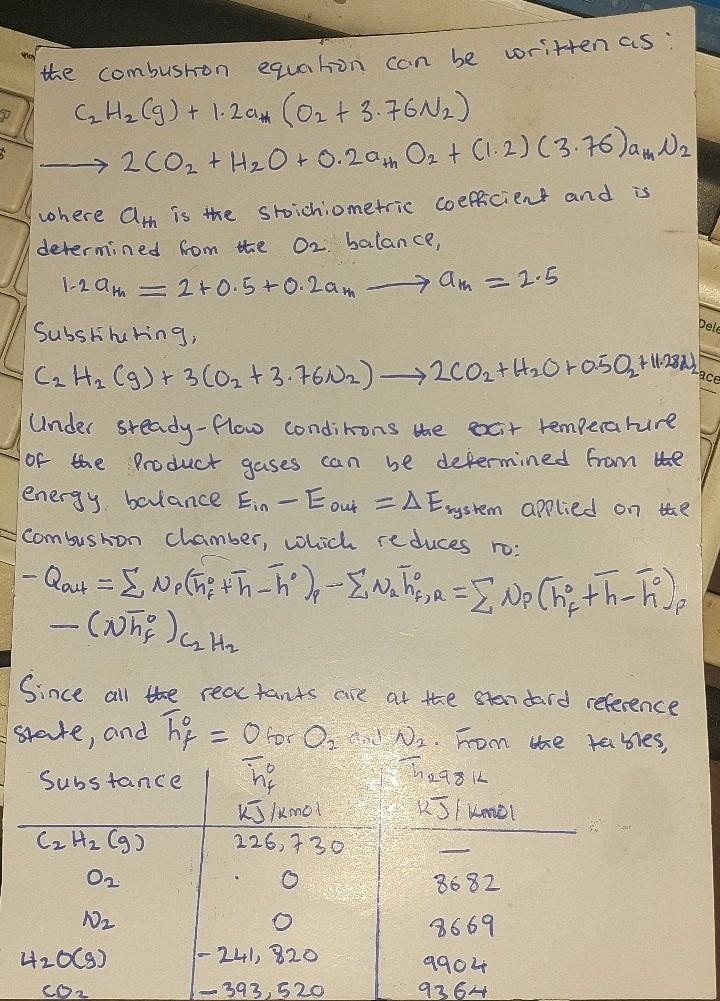 the combustion equation can be written as:
C₂H₂(g) + 1.2aₜₕ (O₂ + 3.76N₂)
⟶ 2CO₂ + H₂O + 0.2aₜₕ O₂ + (1.2)(3.76)aₜₕ N₂
where aₜₕ is the stoichiometric coefficient and is
determined from the O₂ balance,
1.2aₜₕ = 2+0.5+0.2aₜₕ ⟶ aₜₕ = 2.5
Substituting,
C₂H₂(g) + 3(O₂ + 3.76N₂) ⟶ 2CO₂+H₂O+0.5O₂+11.28N₂
Under steady-flow conditions the exit temperature
of the Product gases can be determined from the
energy balance Ein − Eout = ΔEsystem applied on the
combustion chamber, which reduces to:
−Qout = Σ Np(h̄°f + h̄ − h̄°)p − Σ NR h̄°f,R = Σ Np(h̄°f + h̄ − h̄°)p
− (N h̄°f)C₂H₂
Since all the reactants are at the standard reference
state, and h̄°f = 0 for O₂ and N₂. From the tables,
Substance h̄°f h̄298K
kJ/kmol kJ/kmol
C₂H₂(g) 226,730 —
O₂ 0 8682
N₂ 0 8669
H₂O(g) -241,820 9904
CO₂ -393,520 9364